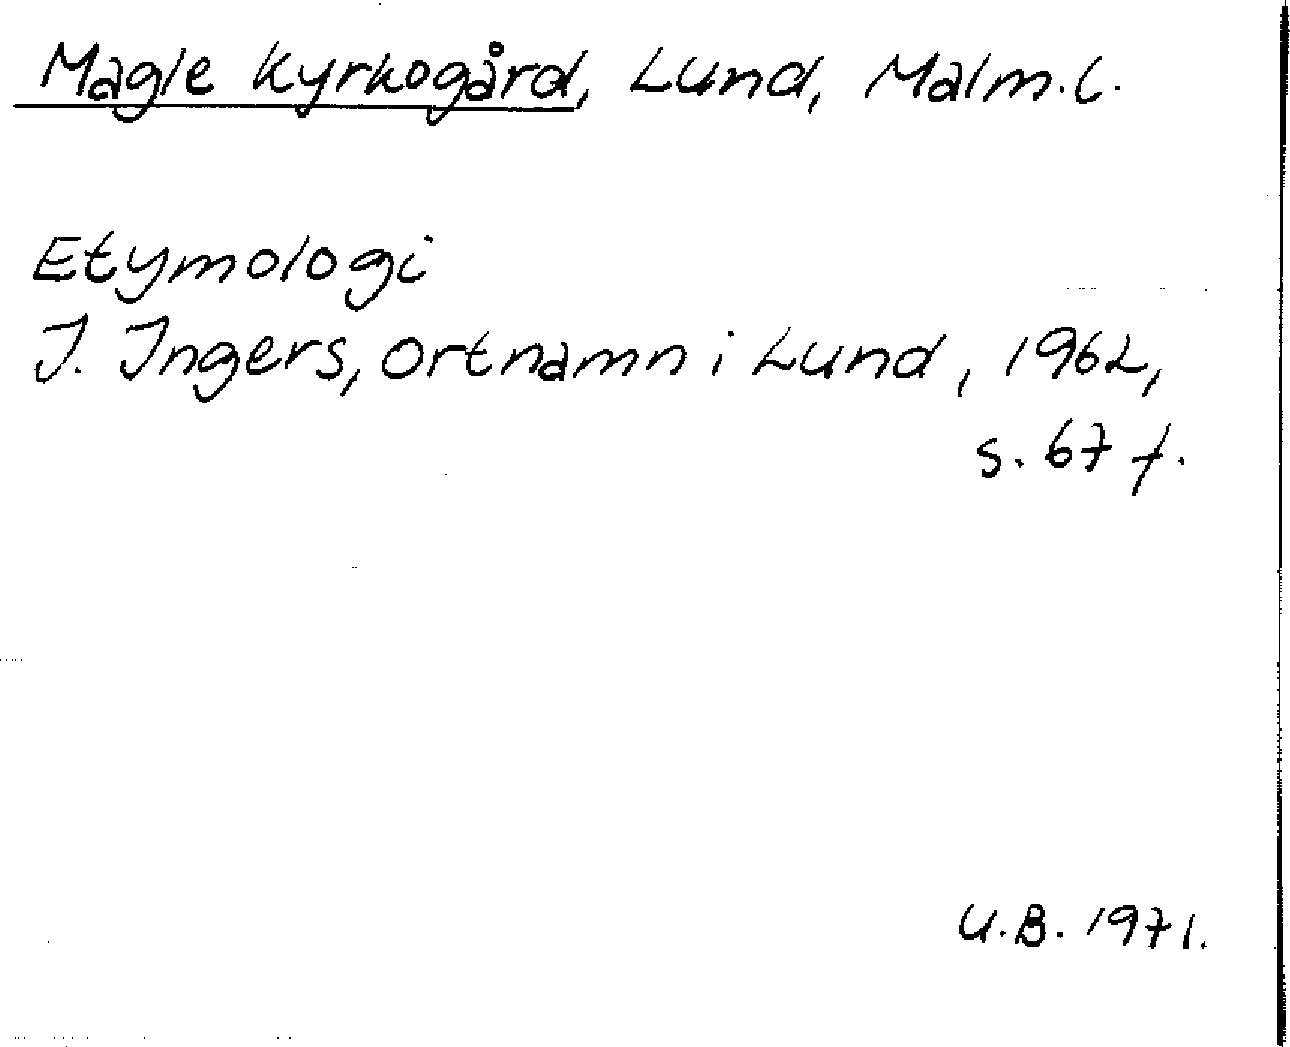 Magle Kyrkogård, Lund, Malm.l.
Etymologi
I. Ingers, Ortnamn i Lund, 1962,
s. 67 f.
U.B. 1971.